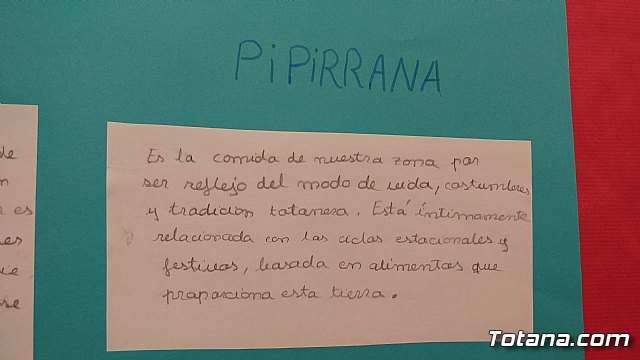 PiPiRRANA
Es la comida de nuestra zona por
ser reflejo del modo de vida, costumbres
y tradicion totanera. Está íntimamente
relacionada con los ciclos estacionales y
festivos, basada en alimentos que
proporciona esta tierra.
de
n
es
es
ue
se
Totana.com